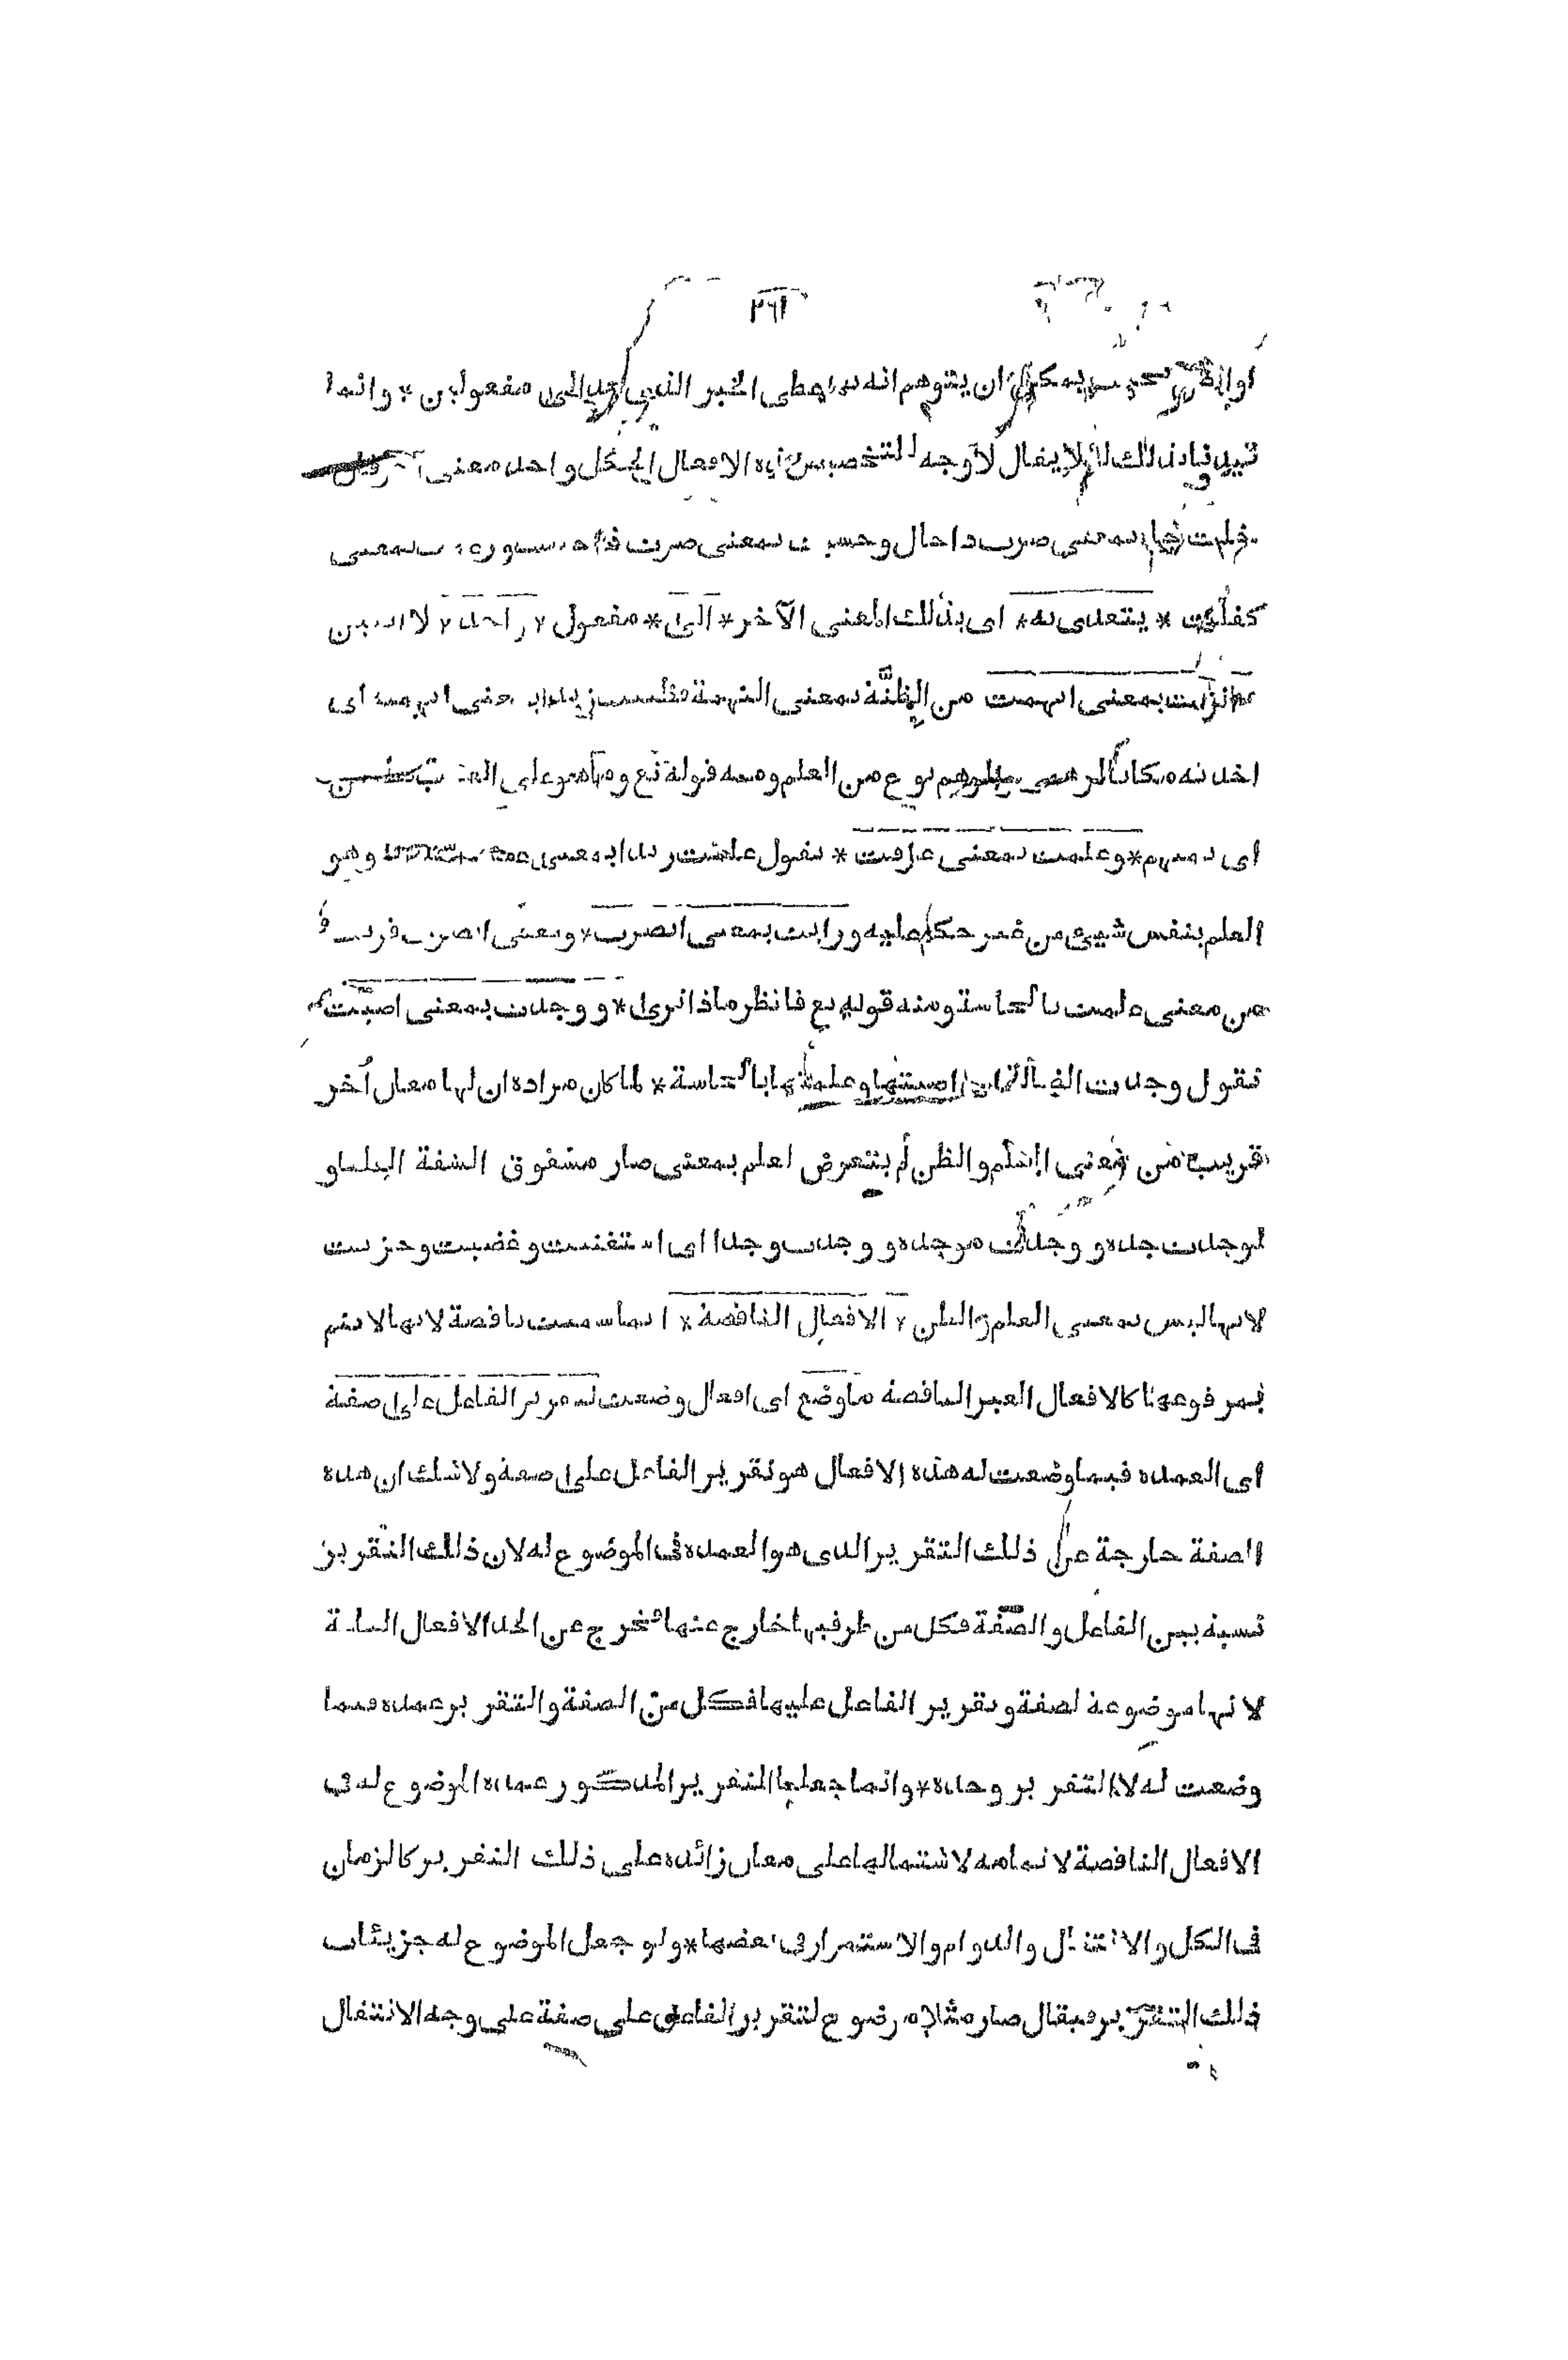 ٢٦١
ان يتوهم انه بالمعنى الخبر الذى مفعولين * وانما
قيدنا بذلك لئلا يقال لا وجه للتخصيص الافعال لكل واحد معنى آخر
بمعنى صرت ذا خال وحسبت بمعنى صرت بمعنى
كفلت * يتعدى به * اى بذلك المعنى الآخر * الى * مفعول * واحد * لا اثنين
بمعنى اتهمت من الظنة بمعنى التهمة اى
اخذته مكانا نوع من العلم ومنه قوله تع وما هو على
اى بمتهم * وعلمت بمعنى عرفت * تقول علمت زيدا بمعنى وهو
العلم بنفس شيئ من غير حكم عليه ورايت بمعنى ابصرت *
من معنى علمت بالحاسة ومنه قوله تع فانظر ماذا ترى * ووجدت بمعنى اصبت *
تقول وجدت الضالة اى اصبتها وعلمتها بالحاسة * لما كان مراده ان لها معان أخر
قريبة من معنى العلم والظن لم يتعرض لعلم بمعنى صار مشقوق الشفة العليا و
لوجدت جدة و وجدت موجدة و وجدت وجدا اى استغنيت وغضبت وحزنت
لانها ليس بمعنى العلم والظن * الافعال الناقصة * انما سميت ناقصة لانها لا تتم
بمرفوعها كالافعال الغير الناقصة ما وضع اى افعال وضعت لتقرير الفاعل على صفة
اى العمدة فيما وضعت له هذه الافعال هو تقرير الفاعل على صفة ولا شك ان هذه
الصفة خارجة عن ذلك التقرير الذى هو العمدة فى الموضوع له لان ذلك التقرير
نسبة بين الفاعل والصفة فكل من طرفيها خارج عنها فخرج عن الحد الافعال التامة
لانها موضوعة لصفة وتقرير الفاعل عليها فكل من الصفة والتقرير عمدة فيما
وضعت له لا التقرير وحده * وانما جعلنا التقرير المذكور عمدة الموضوع له فى
الافعال الناقصة لا تمامه لاشتمالها على معان زائدة على ذلك التقرير كالزمان
فى الكل والانتقال والدوام والاستمرار فى بعضها * ولو جعل الموضوع له جزيئات
ذلك التقرير فيقال صار مثلا موضوع لتقرير الفاعل على صفة على وجه الانتقال